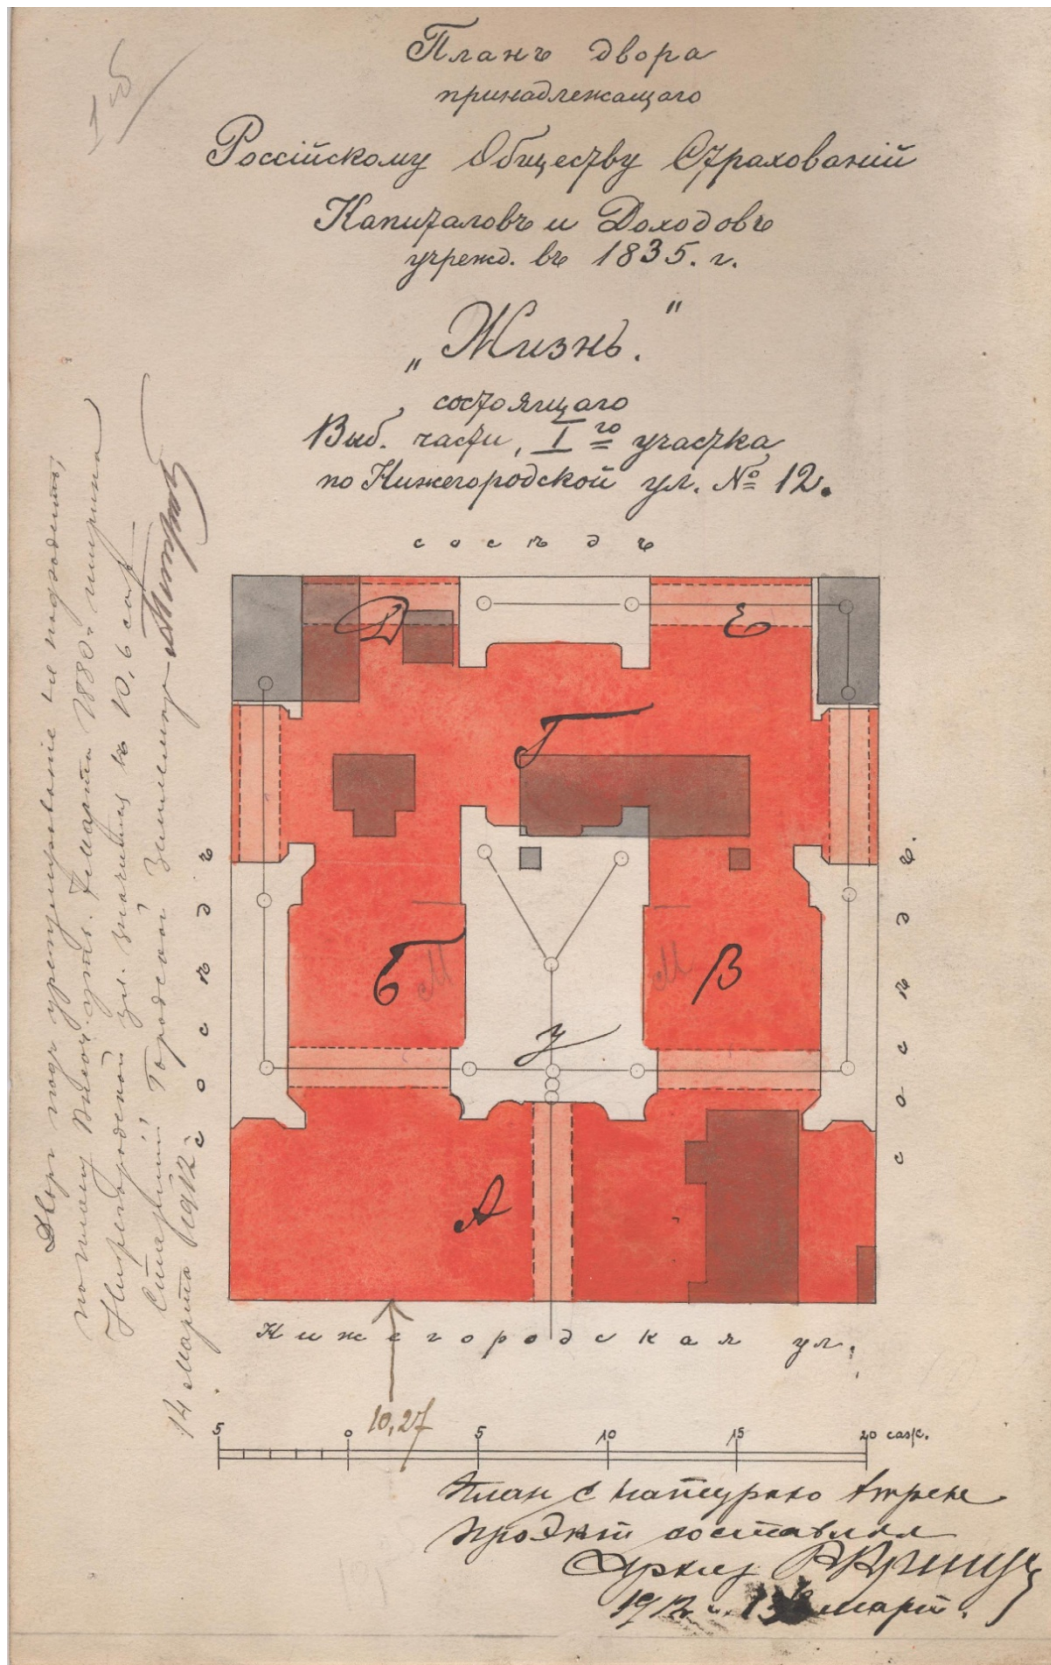 Планъ двора
принадлежащаго
Россійскому Обществу Страхованій
Капиталовъ и Доходовъ
учрежд. въ 1835. г.
„Жизнь."
состоящаго
Выб. части, I го участка
по Нижегородской ул. № 12.
сосѣдъ
Д
Е
Г
Б
В
У
А
сосѣдъ
сосѣдъ.
Нижегородская ул.
10,27
5 0 5 10 15 20 саж.
План с натурою вѣрен
проэкт составлял
1912 г. 13 март.
Двор подъ урегулированіе не подходит,
по плану Высоч. утв. 7 марта 1880 г. ширина
Нижегородской ул. значится в 10,6 саж.
Старшій Городской Землемѣр
14 марта 1912 г.